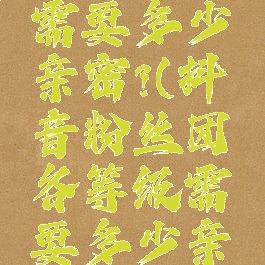 需要多少
亲密?(抖
音粉丝团
各等级需
要多少亲